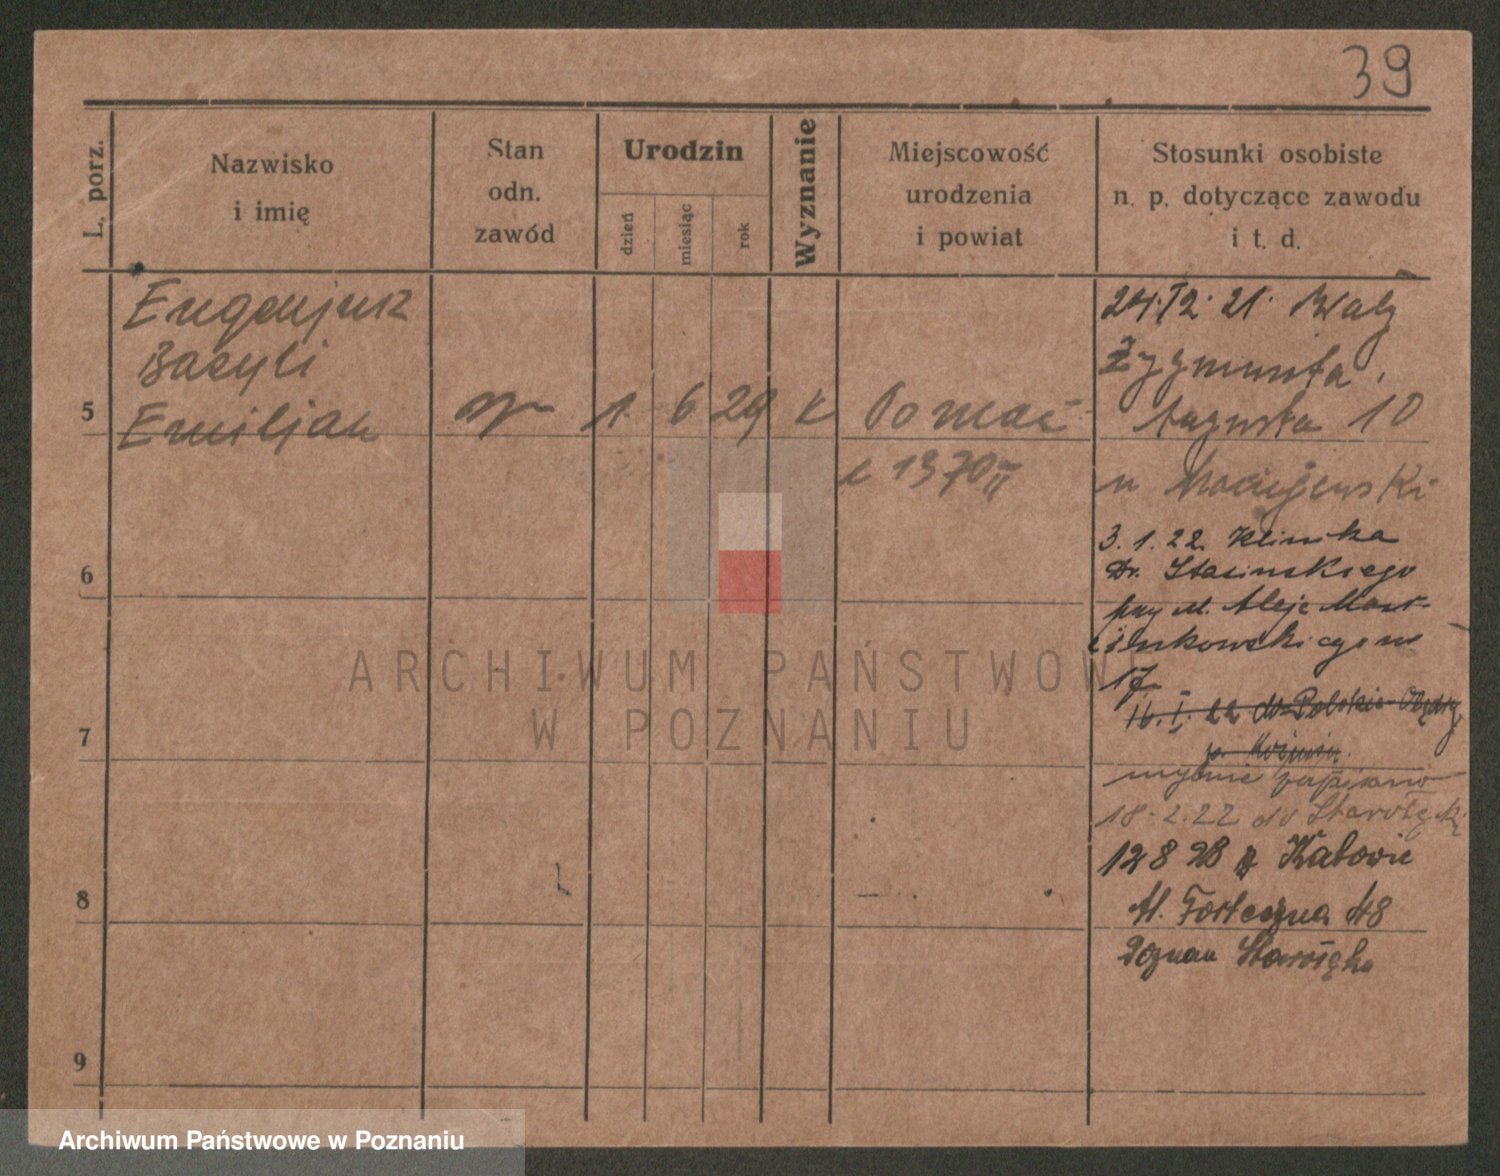 39
L. porz.
Nazwisko
i imię
Stan
odn.
zawód
Urodzin
dzień
miesiąc
rok
Wyznanie
Miejscowość
urodzenia
i powiat
Stosunki osobiste
n. p. dotyczące zawodu
i t. d.
Eugenjusz
Bazyli
5 Emiljan 1. 6 29 k Poznań
1370 II
24.12.21. Wały
Zygmunta
Augusta 10
u Maciejewski
3.1.22. Klinika
Dr. Stasinskiego
przy ul. Aleje Mar-
cinkowskiego nr
17
16.I.22 do Polskie
mylnie zapisano
18.2.22 do Starołęki
12 8 28 Katowic
Ul. Forteczna 48
Poznań Starołęka
6
7
8
9
ARCHIWUM PAŃSTWOWE
W POZNANIU
Archiwum Państwowe w Poznaniu